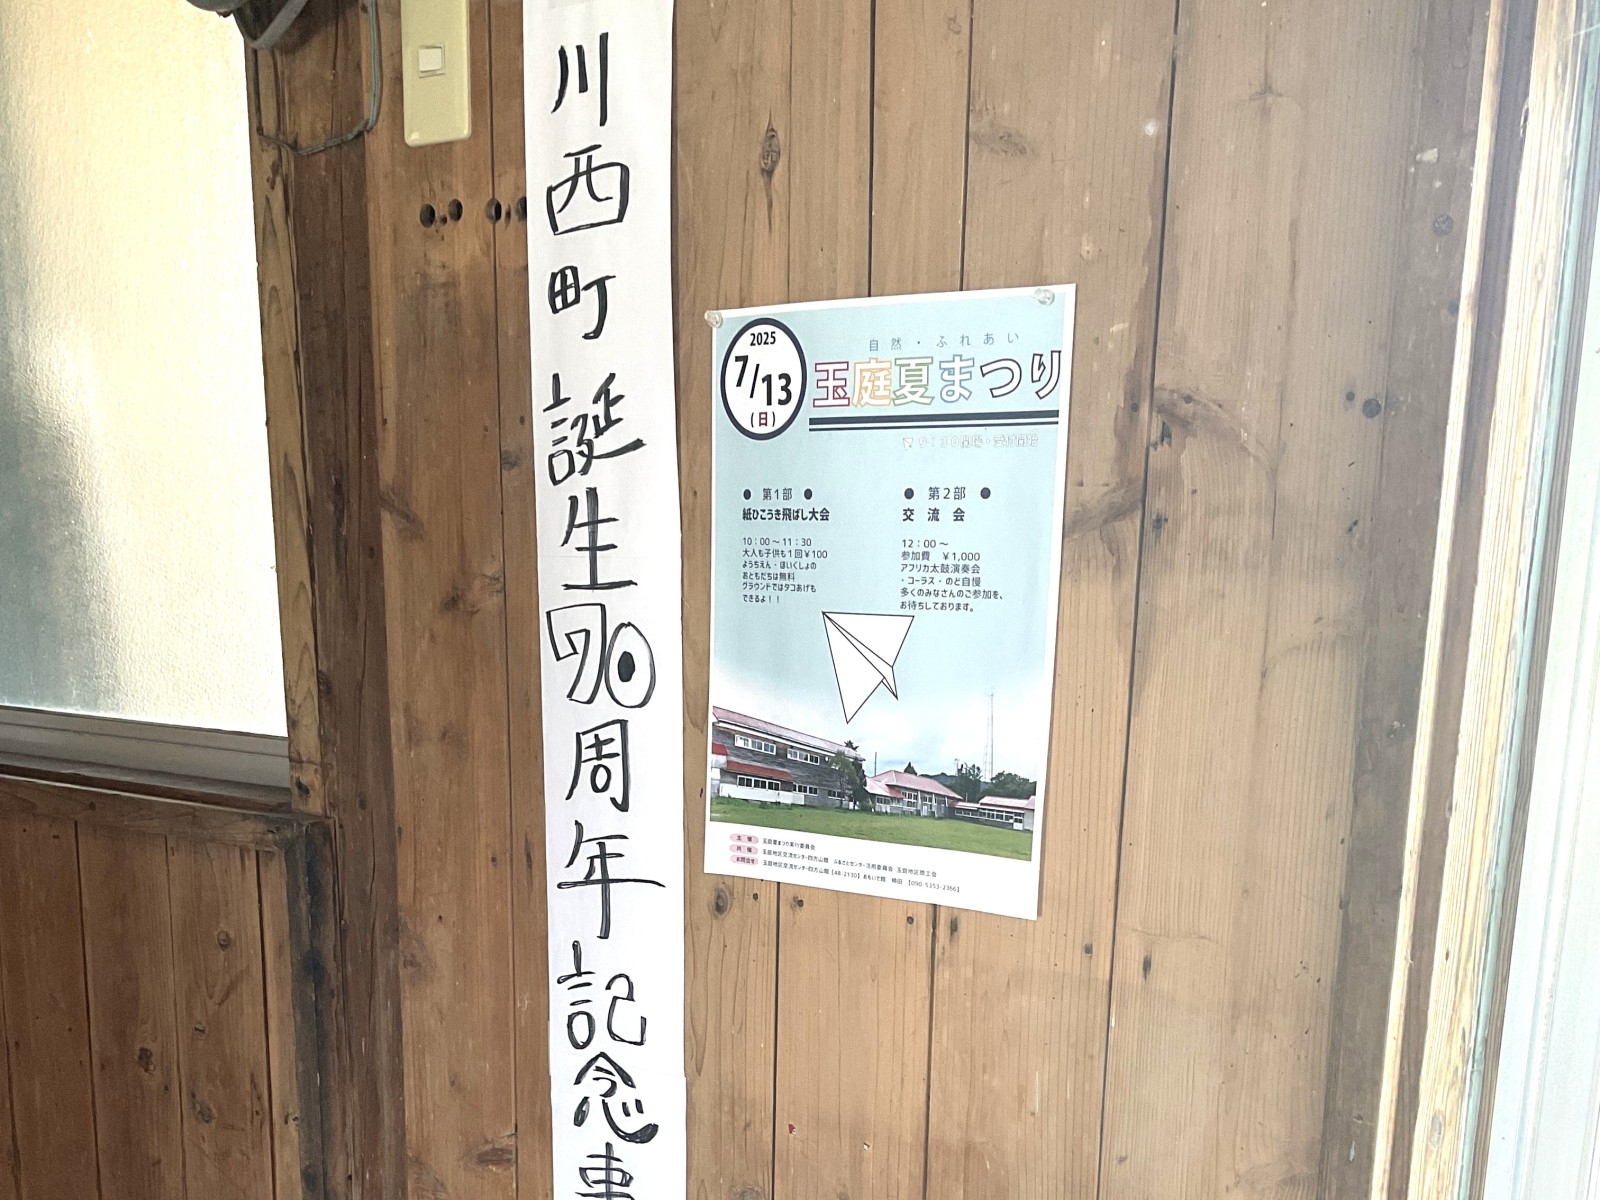 川西町誕生70周年記念事
2025
7/13
(日)
自然・ふれあい
玉庭夏まつり
9:30開場・受付開始
● 第1部 ●
紙ひこうき飛ばし大会
10:00〜11:30
大人も子供も1回¥100
ようちえん・ほいくしょの
おともだちは無料
グラウンドではタコあげも
できるよ！！
● 第2部 ●
交流会
12:00〜
参加費 ¥1,000
アフリカ太鼓演奏会
・コーラス・のど自慢
多くのみなさんのご参加を、
お待ちしております。
主催 玉庭夏まつり実行委員会
共催 玉庭地区交流センター四方山館 ふるさとセンター活用委員会 玉庭地区商工会
お問合せ 玉庭地区交流センター四方山館【48-2130】おもいで館 【090-5353-2366】